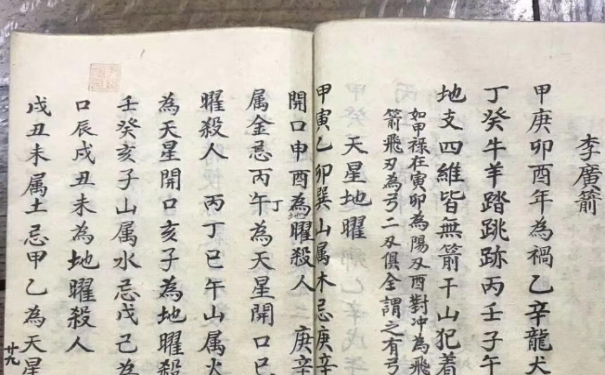 李廣箭
甲庚卯酉年為禍乙辛龍犬
丁癸牛羊踏跳跡丙壬子午
地支四維皆無箭干山犯着
如甲祿在寅卯為陽刃酉對冲為飛
箭飛刃為弓二刃俱全謂之有弓
天星地曜
甲寅乙卯巽山属木忌庚辛
開口申酉為地曜殺人 庚辛
属金忌丙丁午為天星開口巳
曜殺人 丙丁巳午山属火
為天星開口亥子為地曜殺
壬癸亥子山属水忌戊己為
口辰戌丑未為地曜殺人
戌丑未属土忌甲乙為天星
廿九